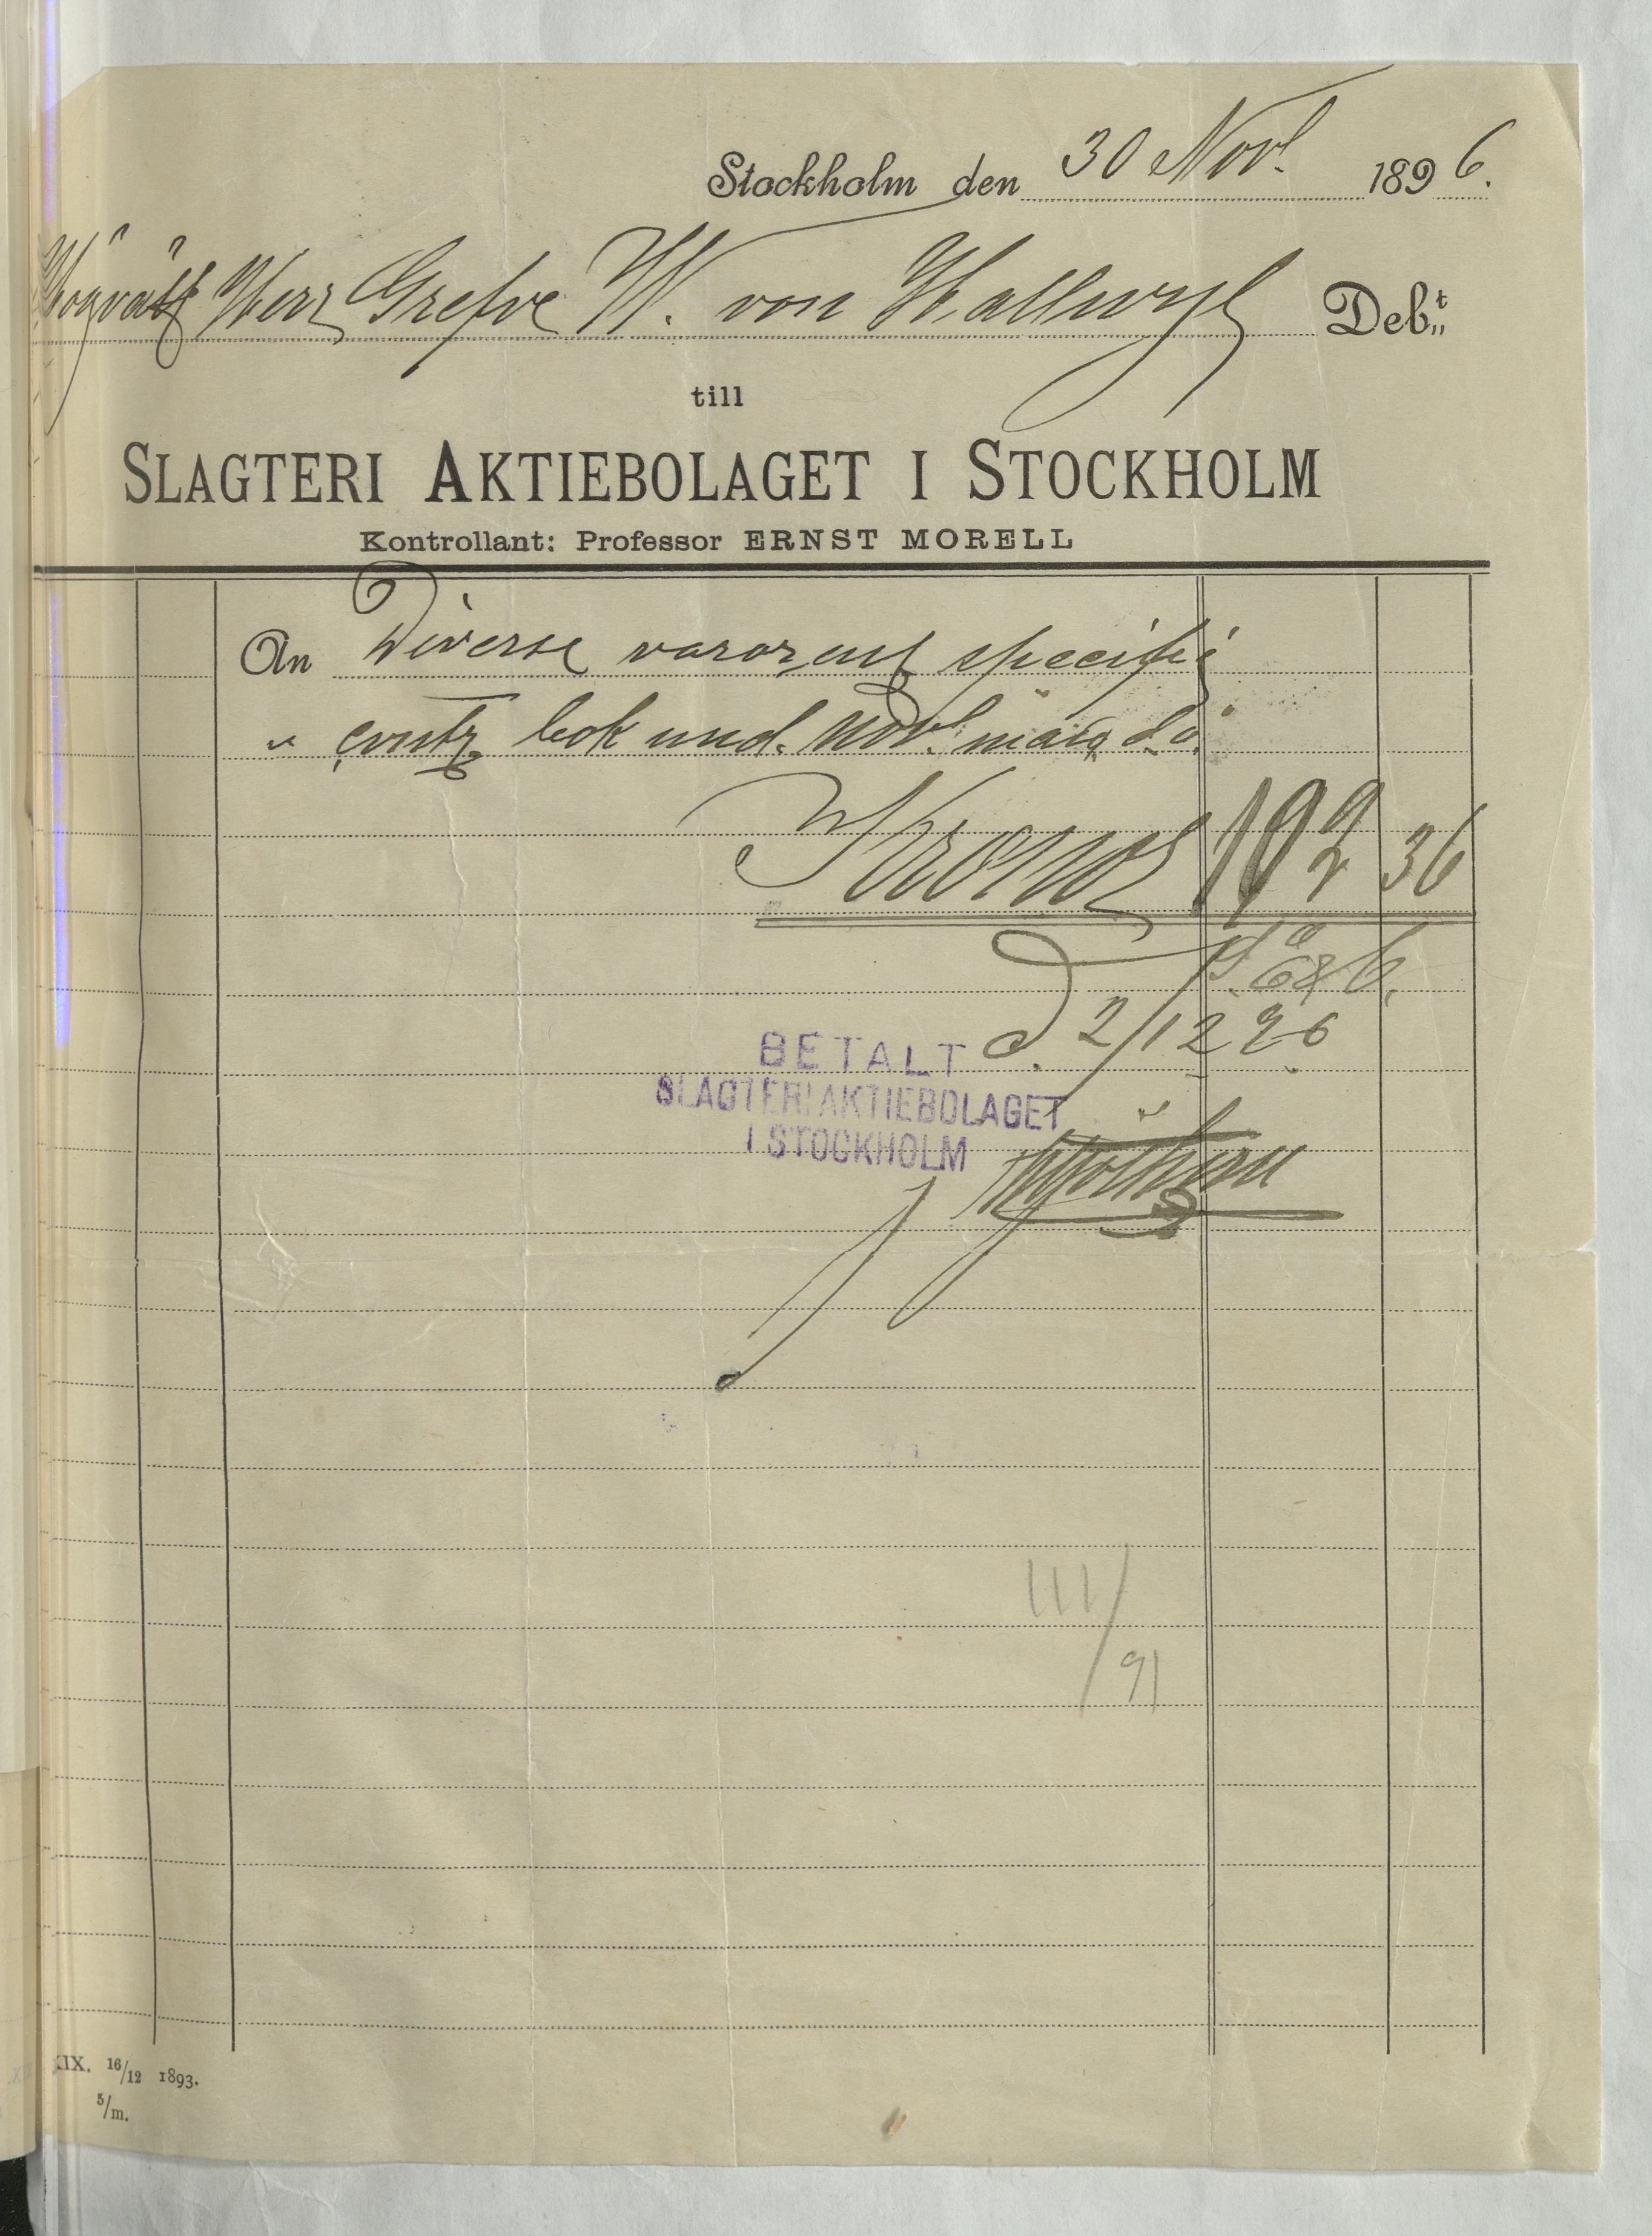 Stockholm den 30 Nov. 1896.
Högvälb Herr Grefve W. von Hallwyl Deb:t
till
SLAGTERI AKTIEBOLAGET I STOCKHOLM
Kontrollant: Professor ERNST MORELL
An Diverse varor enl specifi
" contr bok und. Nov. månd d.å.
Kronor 192 36
S. E & O.
d. 2/12 96
BETALT
SLAGTERIAKTIEBOLAGET
I STOCKHOLM
111/91
XIX. 16/12 1893.
5/m.